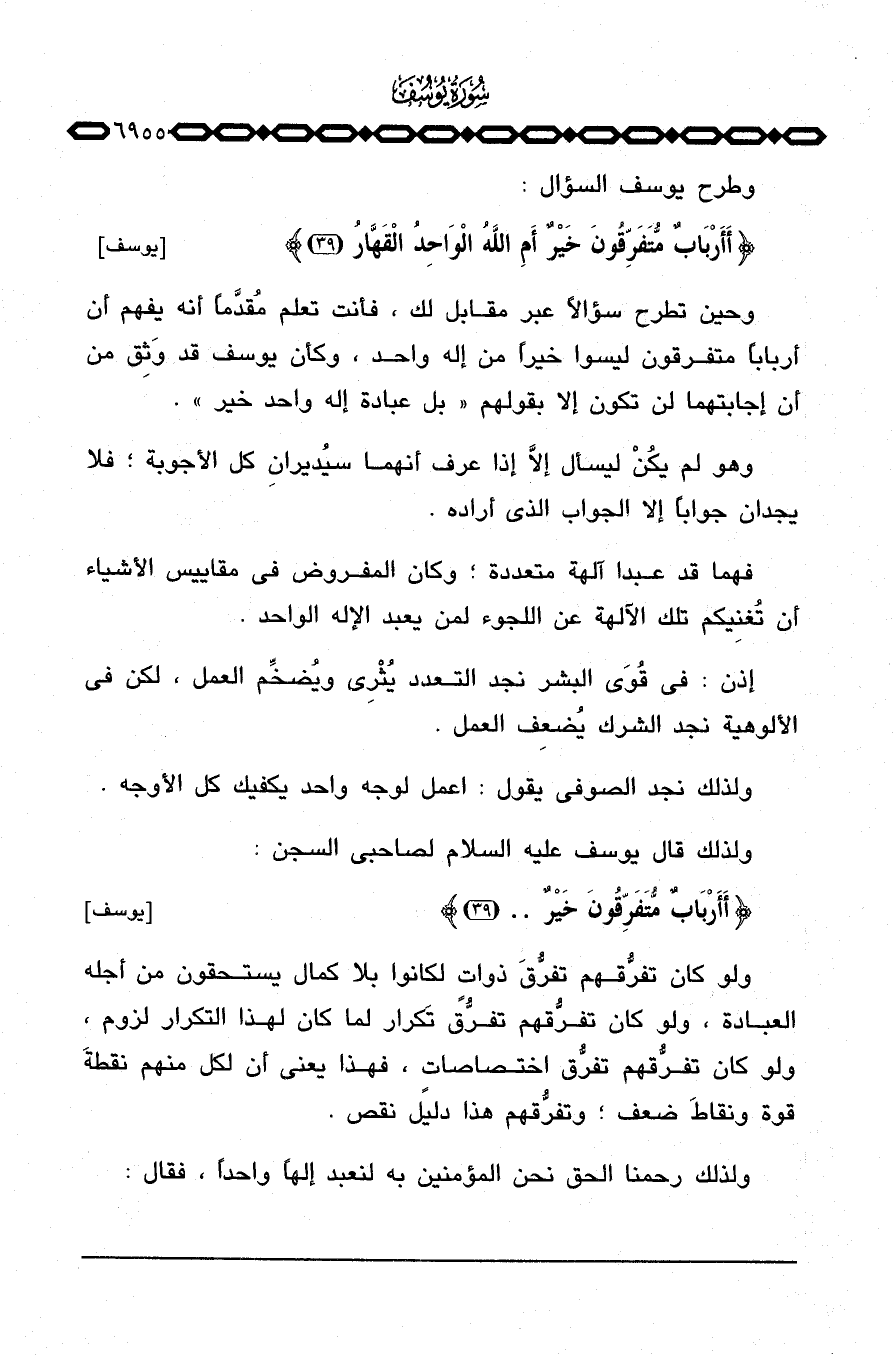 سُورَةُ يُوسُفَ
٦٩٥٥
وطرح يوسف السؤال :
﴿ أَأَرْبَابٌ مُّتَفَرِّقُونَ خَيْرٌ أَمِ اللَّهُ الْوَاحِدُ الْقَهَّارُ (٣٩) ﴾ [يوسف]
وحين تطرح سؤالاً عبر مقابل لك ، فأنت تعلم مُقدَّماً أنه يفهم أن
أرباباً متفرقون ليسوا خيراً من إله واحد ، وكأن يوسف قد وَثِق من
أن إجابتهما لن تكون إلا بقولهم « بل عبادة إله واحد خير » .
وهو لم يكُنْ ليسأل إلاَّ إذا عرف أنهما سيُديرانِ كل الأجوبة ؛ فلا
يجدان جواباً إلا الجواب الذى أراده .
فهما قد عبدا آلهة متعددة ؛ وكان المفروض فى مقاييس الأشياء
أن تُغنِيكم تلك الآلهة عن اللجوء لمن يعبد الإله الواحد .
إذن : فى قُوَى البشر نجد التعدد يُثْرِى ويُضخِّم العمل ، لكن فى
الألوهية نجد الشرك يُضعِف العمل .
ولذلك نجد الصوفى يقول : اعمل لوجه واحد يكفيك كل الأوجه .
ولذلك قال يوسف عليه السلام لصاحبى السجن :
﴿ أَأَرْبَابٌ مُّتَفَرِّقُونَ خَيْرٌ .. (٣٩) ﴾ [يوسف]
ولو كان تفرُّقهم تفرُّقَ ذواتٍ لكانوا بلا كمال يستحقون من أجله
العبادة ، ولو كان تفرُّقهم تفرُّقَ تَكرار لما كان لهذا التكرار لزوم ،
ولو كان تفرُّقهم تفرُّق اختصاصاتٍ ، فهذا يعنى أن لكل منهم نقطةَ
قوة ونقاطَ ضعف ؛ وتفرُّقهم هذا دليل نقص .
ولذلك رحمنا الحق نحن المؤمنين به لنعبد إلهاً واحداً ، فقال :